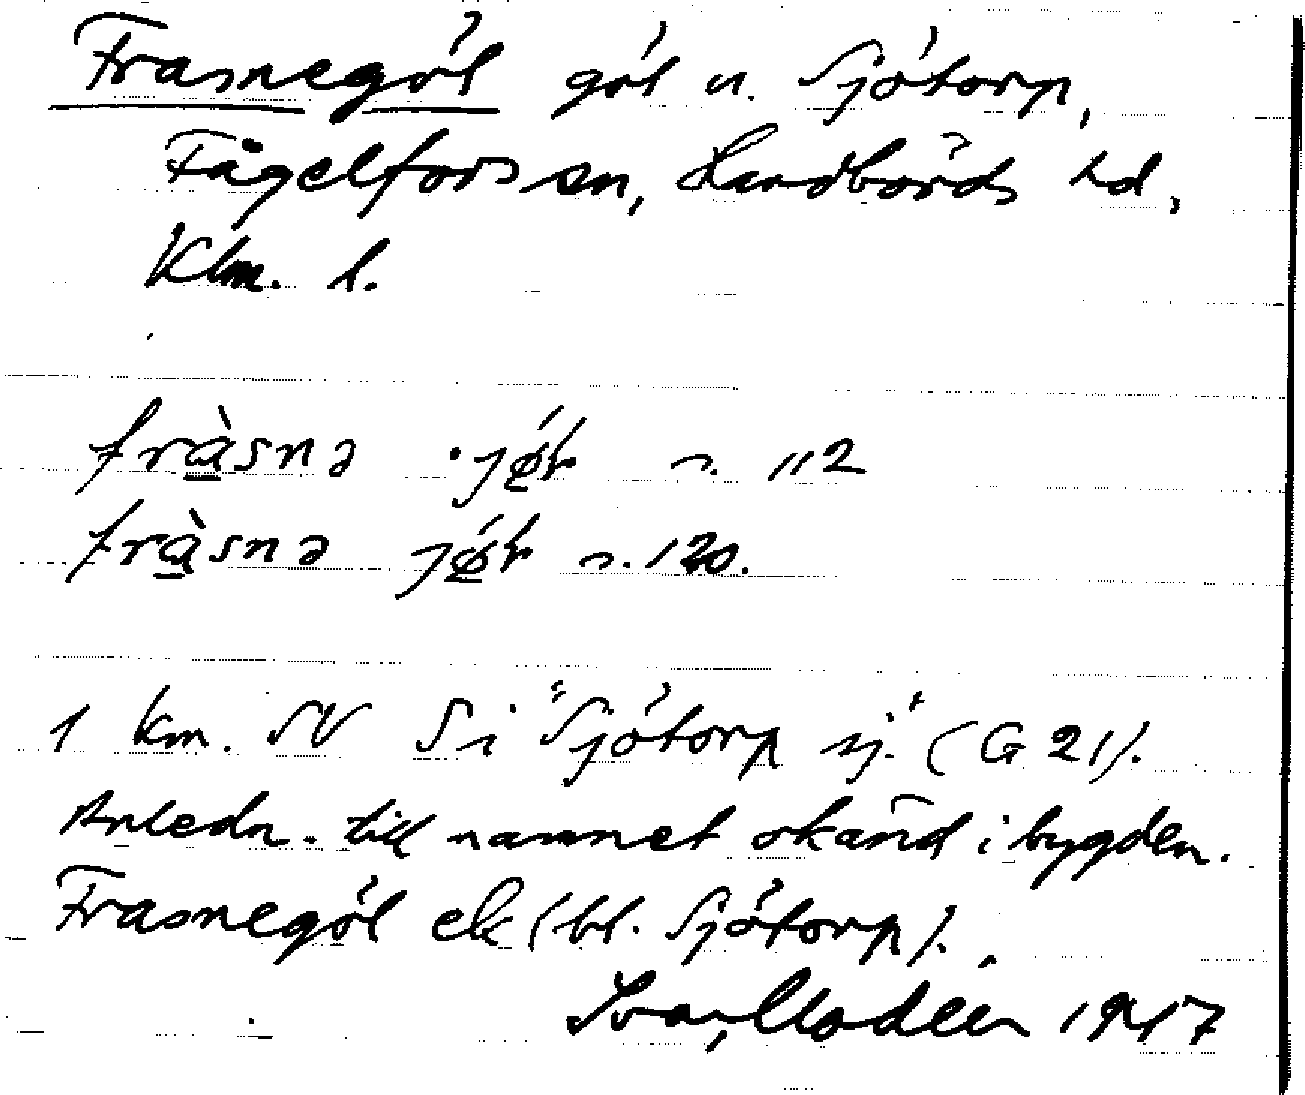 Frasnegöl göl n. Sjötorp,
Fågelfors sn, Handbörds hd,
Klm. l.
fràsnə ·jǿl n. 112
fràsnə jǿl n. 120.
1 km. SV S i "Sjötorp sj." (G 21).
Anledn. till namnet okänd i bygden.
Frasnegöl ek (bl. Sjötorp).
Ivar Modéer 1947